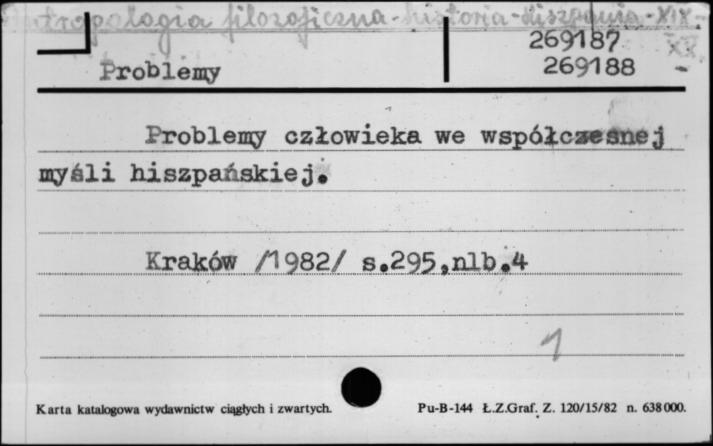 Antropologia filozoficzna - historia - Hiszpania - XIX -
XX
269187
Problemy 269188 -
Problemy człowieka we współczesnej
myśli hiszpańskiej.
Kraków /1982/ s.295,nlb.4
1
Karta katalogowa wydawnictw ciągłych i zwartych. Pu-B-144 Ł.Z.Graf. Z. 120/15/82 n. 638000.